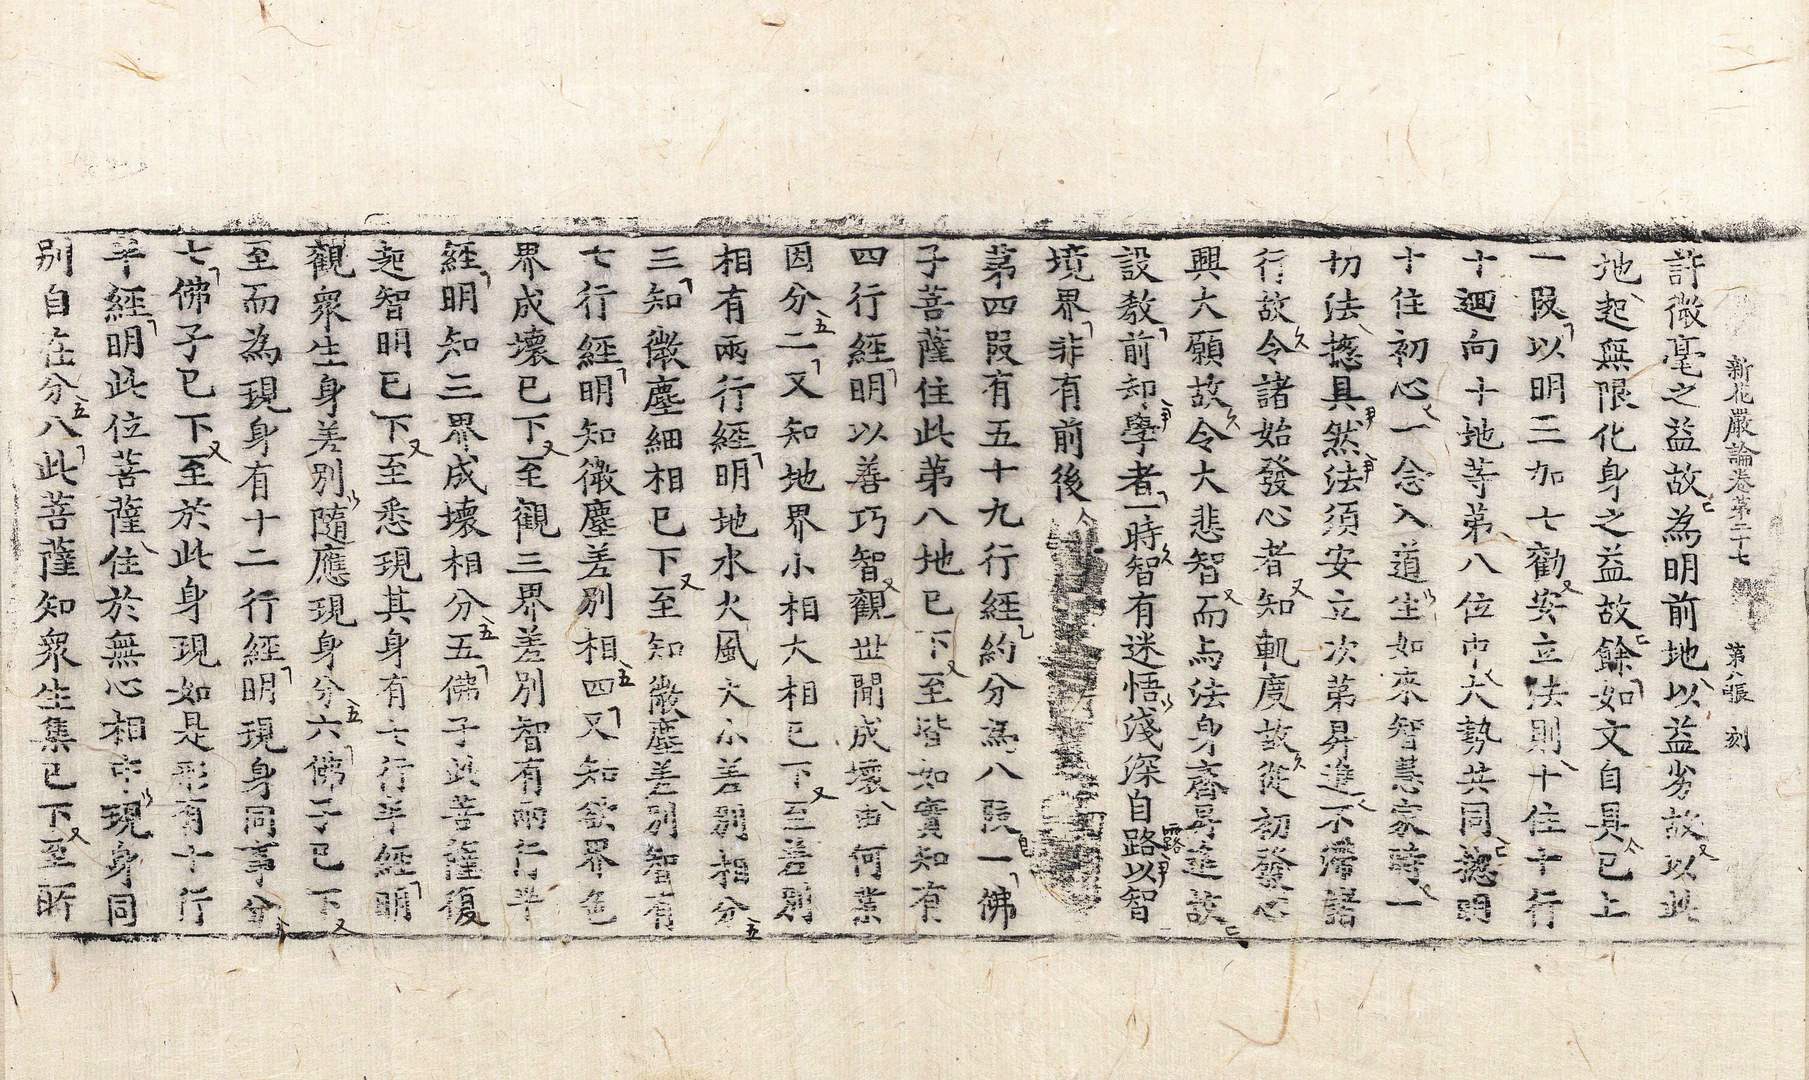 新花嚴論卷第二十七 第八張 刻
許微毫之益故為明前地以益劣故以此
地起無限化身之益故餘如文自具已上
一段以明三加七勸安立法則十住十行
十迴向十地等第八位中大勢共同摠明
十住初心一念入道生如來智慧家時一
切法摠具然法須安立次第昇進不滯諸
行故令諸始發心者知軌度故從初發心
興大願故令大悲智而与法身齊昇進故
設教前却學者一時智有迷悟淺深自路以智
境界非有前後
第四段有五十九行經約分為八段一佛
子菩薩住此第八地已下至皆如實知有
四行經明以善巧智觀世間成壞由何業
因分二又知地界小相大相已下至差別
相有兩行經明地水火風大小差別相分
三知微塵細相已下至知微塵差別智有
七行經明知微塵差別相四又知欲界色
界成壞已下至觀三界差別智有兩行半
經明知三界成壞相分五佛子此菩薩復
起智明已下至悉現其身有七行半經明
觀衆生身差別隨應現身分六佛子已下
至而為現身有十二行經明現身同事分
七佛子已下至於此身現如是形有十行
半經明此位菩薩住於無心相中現身同
別自在分八此菩薩知衆生集已下至所